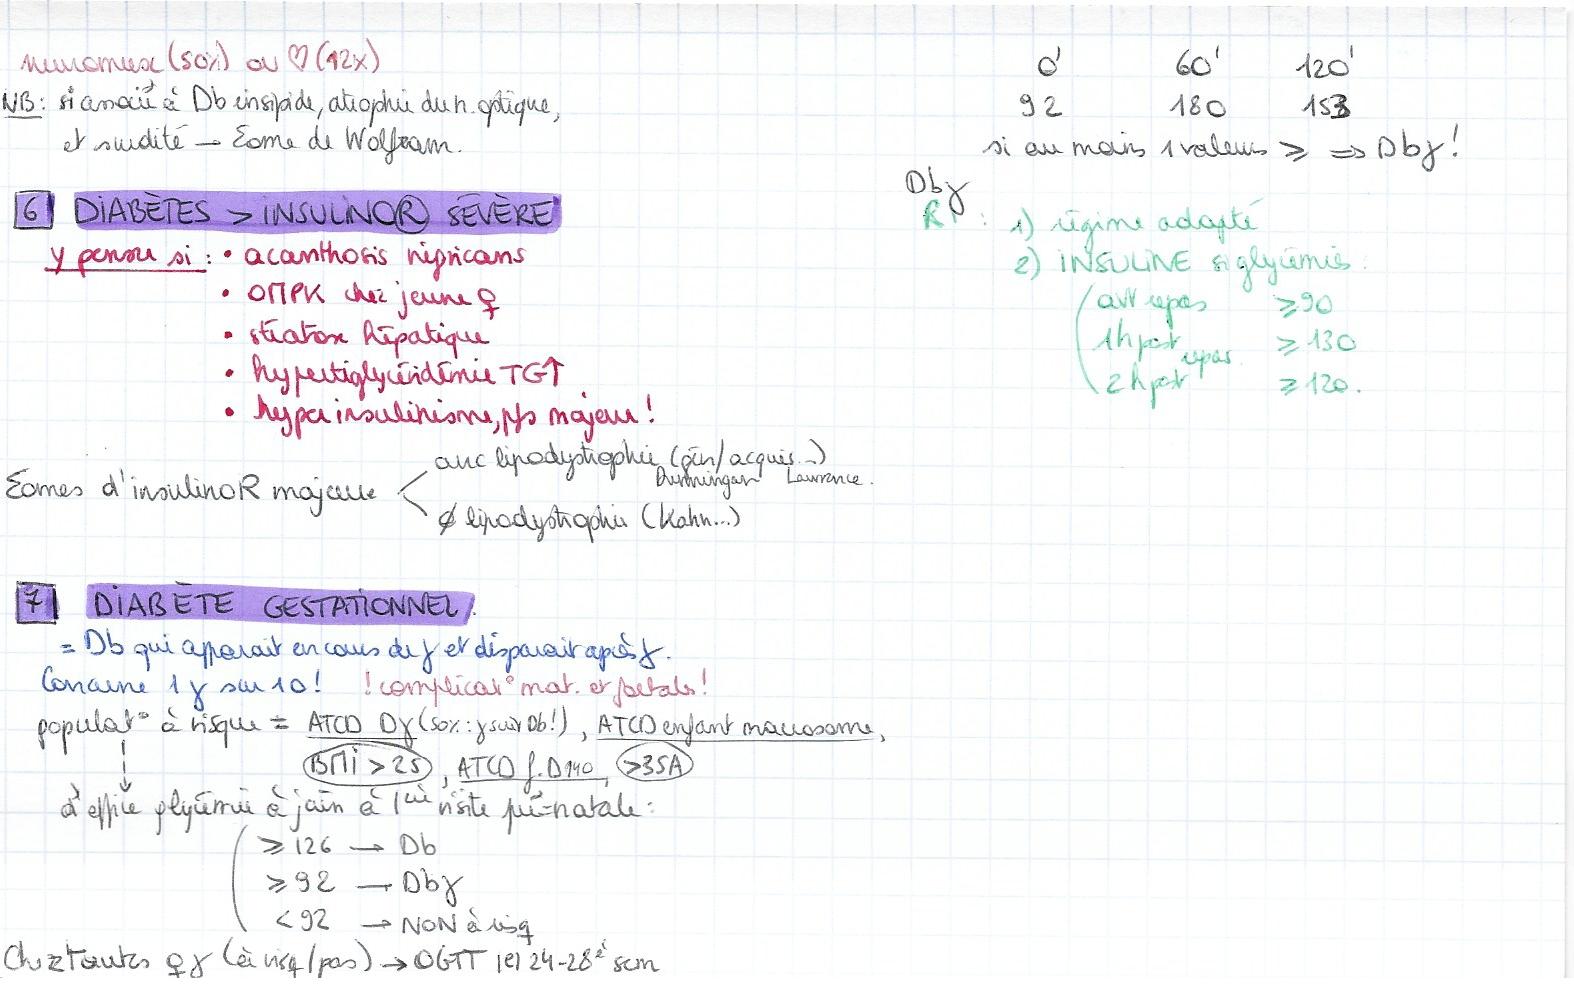 neuromusc (50%) ou ♡ (12x)
NB: si associé à Db insipide, atrophie du n. optique,
et surdité → Σome de Wolfram.
6 DIABÈTES > INSULINOⓇ SÉVÈRE
y penser si : • acanthosis nigricans
• OMPK chez jeune ♀
• stéatose hépatique
• hypertriglycéridémie TG↑
• hyperinsulinisme, pfs majeur !
Σomes d'insulinoR majeure < avec lipodystrophie (gén/acquis...)
Dunningan Lawrence.
∅ lipodystrophie (Kahn...)
7 DIABÈTE GESTATIONNEL.
= Db qui apparait en cours de γ et disparait après γ.
Concerne 1 γ sur 10 ! ! complicat° mat. et foetales !
populat° à risque = ATCD Dγ (50% : γ suiv Db!), ATCD enfant macrosome,
BMI > 25, ATCD f. D140, >35A
↓
à effue glycémie à jeun à 1ère visite pré-natale :
≥ 126 → Db
≥ 92 → Dbγ
< 92 → NON à risq
Chez toutes ♀γ (à risq/pas) → OGTT 24-28è sem
0' 60' 120'
92 180 153
si au moins 1 valeurs ≥ ⇒ Dbγ !
Dbγ
R/ : 1) régime adapté
2) INSULINE si glycémies :
avt repas ≥ 90
1h post repas. ≥ 130
2h post ≥ 120.